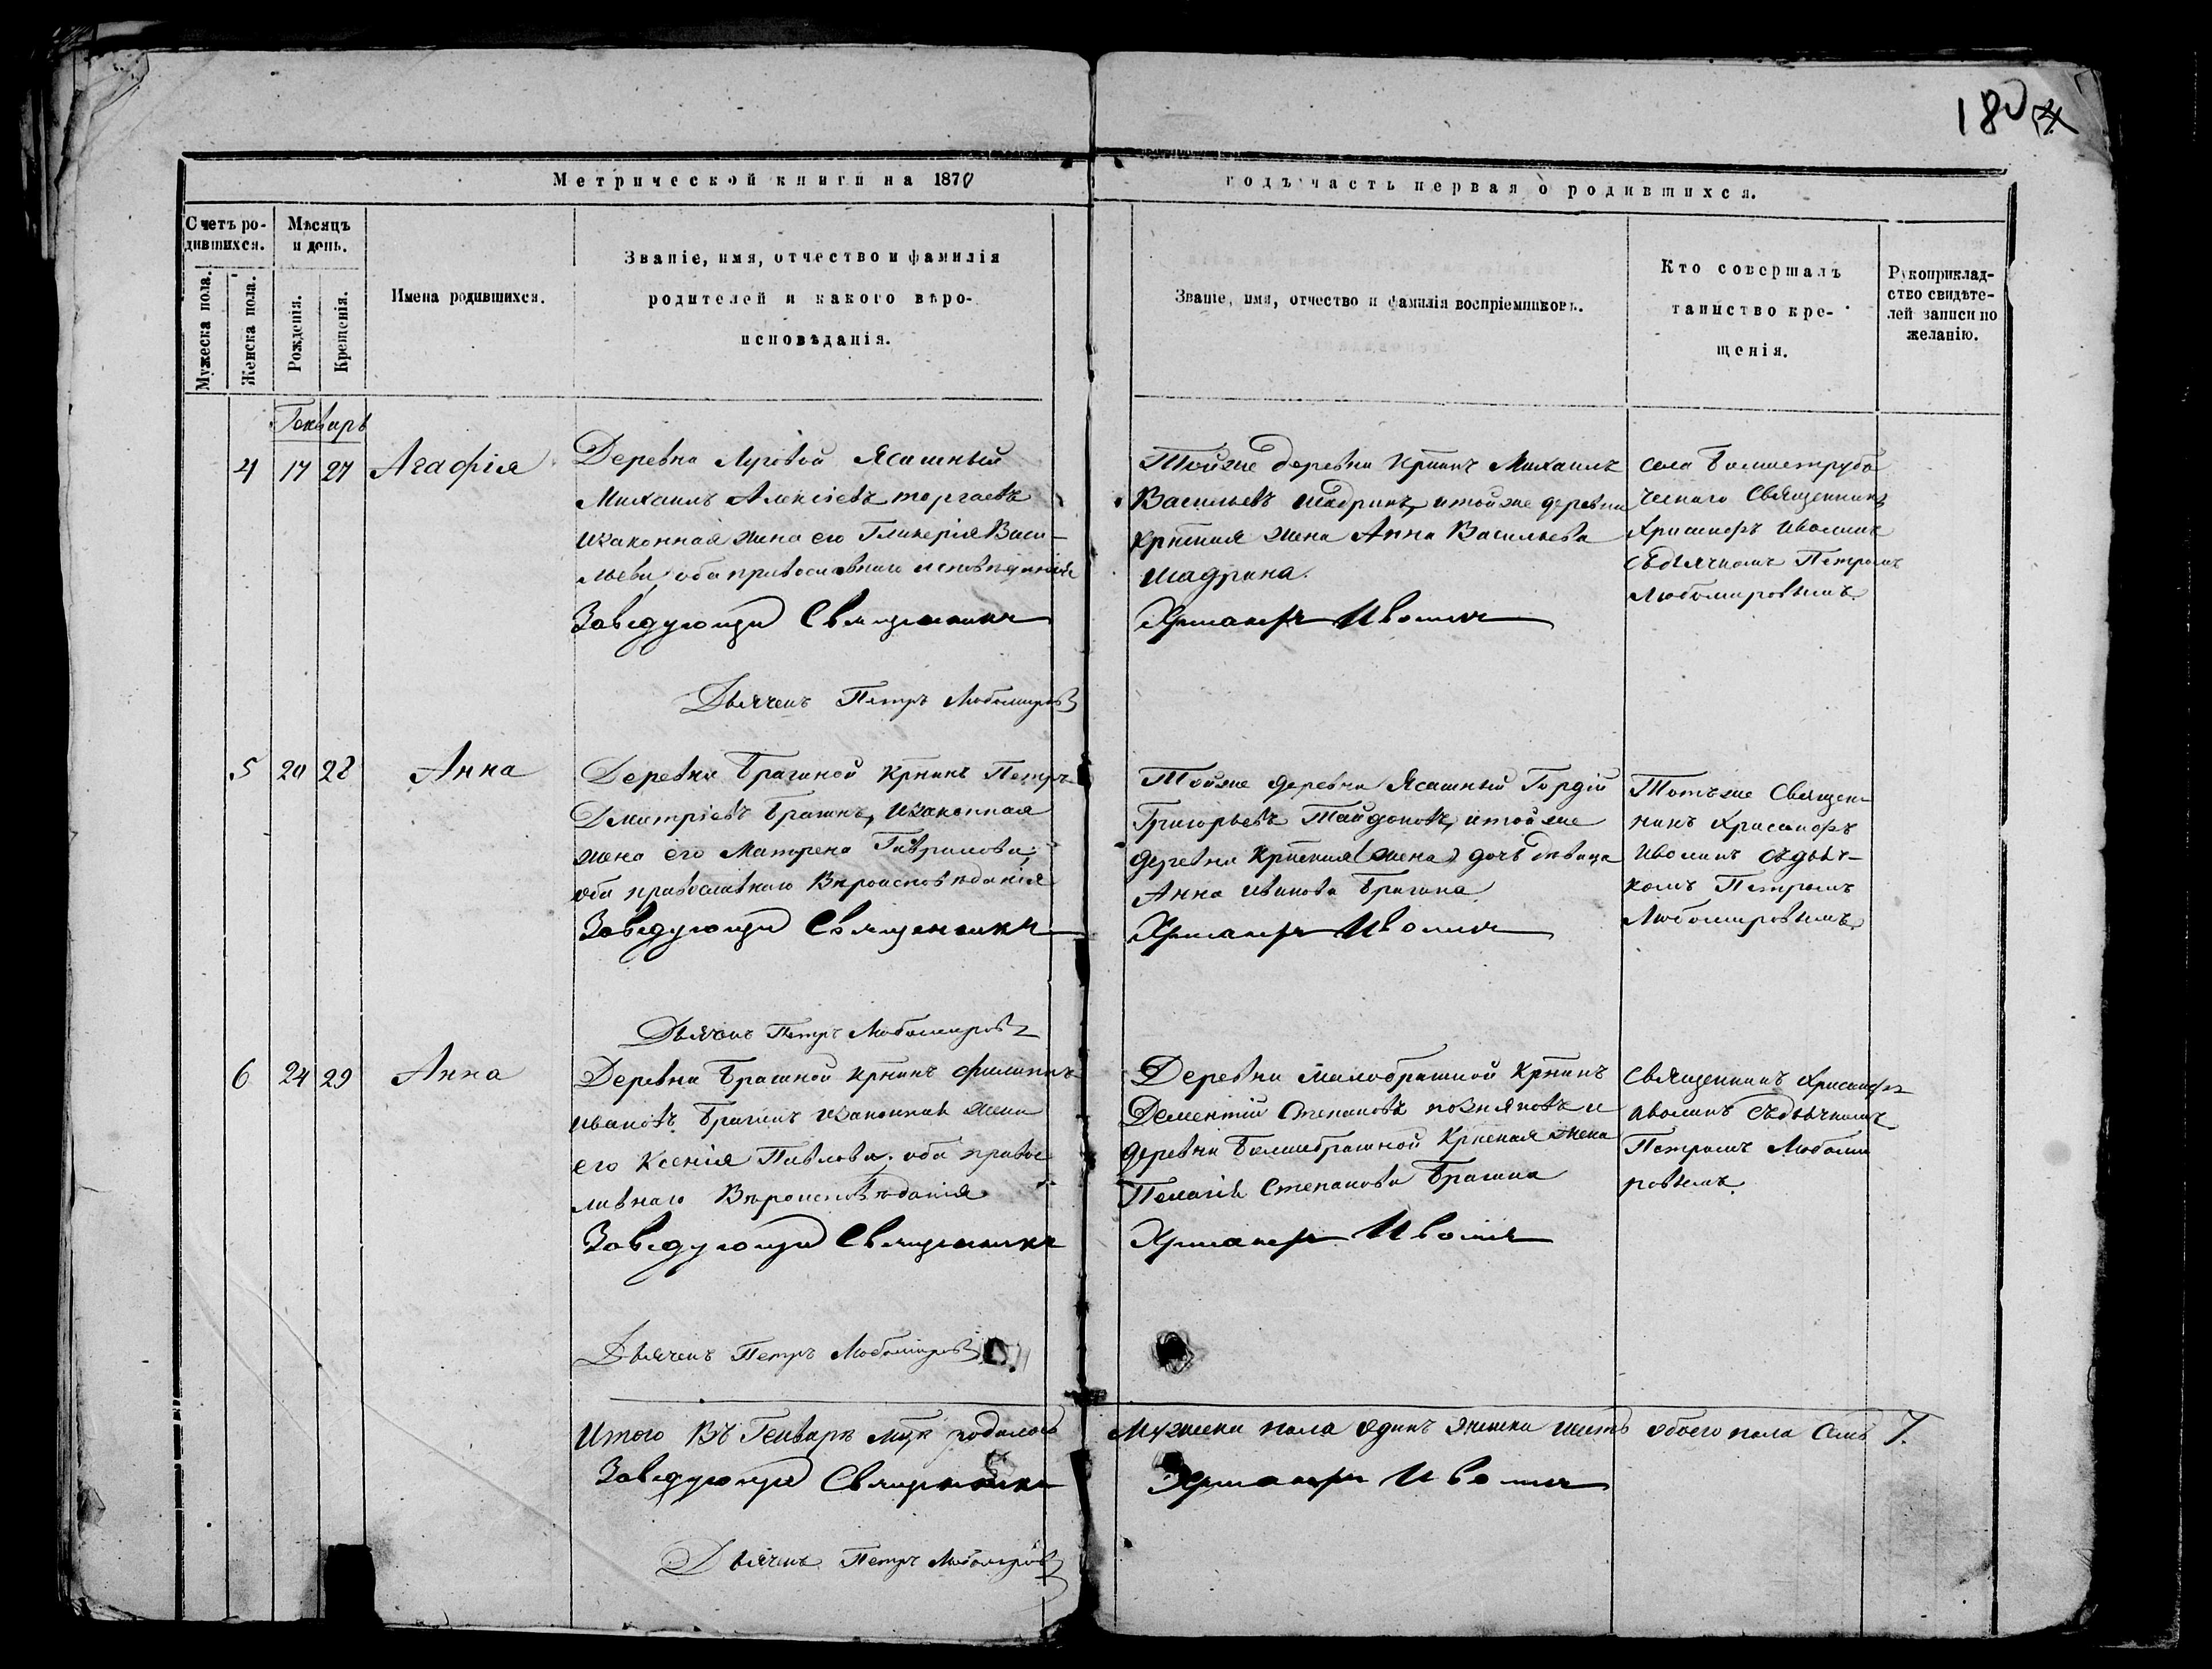 180
Метрической книги на 1870
годъ часть первая о родившихся.
Счетъ ро-
дившихся.
Мѣсяцъ
и день.
Мужеска пола.
Женска пола.
Рожденія.
Крещенія.
Имена родившихся.
Званіе, имя, отчество и фамилія
родителей и какого вѣро-
исповѣданія.
Званіе, имя, отчество и фамилія воспріемниковъ.
Кто совершалъ
таинство кре-
щенія.
Рукоприклад-
ство свидѣте-
лей записи по
желанію.
Генварь
4 17 27 Агафія
Деревни Луговой Ясашный
Михаилъ Алексіевъ торгаевъ
изаконная жена его Гликерія Васи-
льева, оба православнаго исповѣданія
Заведующій Священникъ
Дьячекъ Петръ Любомировъ
Тойже деревни крнинъ Михаилъ
Васильевъ шадринъ, итойже деревни
крнская жена Анна Васильева
шадрина.
Хрисанфъ Ивонинъ
села
Священникъ
Хрисанфъ Ивонинъ
съдьячкомъ Петромъ
Любомировымъ.
5 20 28 Анна
Деревни Брагиной крнинъ Петръ
Дмитріевъ Брагинъ, изаконная
жена его Матрена Гаврилова,
оба православнаго Вѣроисповѣданія
Заведующій Священникъ
Дьячекъ Петръ Любомировъ
Тойже деревни Ясашный Гордій
Григорьевъ Тайдоновъ, итойже
деревни крнская (жена) дочь девица
Анна Иванова Брагина.
Хрисанфъ Ивонинъ
Тотъже Священ-
никъ Хрисанфъ
Ивонинъ съдьяч-
комъ Петромъ
Любомировымъ.
6 24 29 Анна
Деревни Брагиной крнинъ филипъ
ивановъ Брагинъ изаконная жена
его Ксенія Павлова, оба правос
лавнаго Вѣроисповѣданія
Заведующій Священникъ
Дьячекъ Петръ Любомировъ
Деревни малобрагиной Крнинъ
Дементій Степановъ позняковъ и
деревни Большебрагиной Крнская жена
Пелагія Степанова Брагина
Хрисанфъ Ивонинъ
Священникъ Хрисанфъ
Ивонинъ съдьячкомъ
Петромъ Любоми
ровымъ.
Итого Въ Генварѣ мцѣ родилось
Мужеска пола одинъ женска шесть обоего пола семь 7.
Заведующій Священникъ
Хрисанфъ Ивонинъ
Дьячекъ Петръ Любомировъ